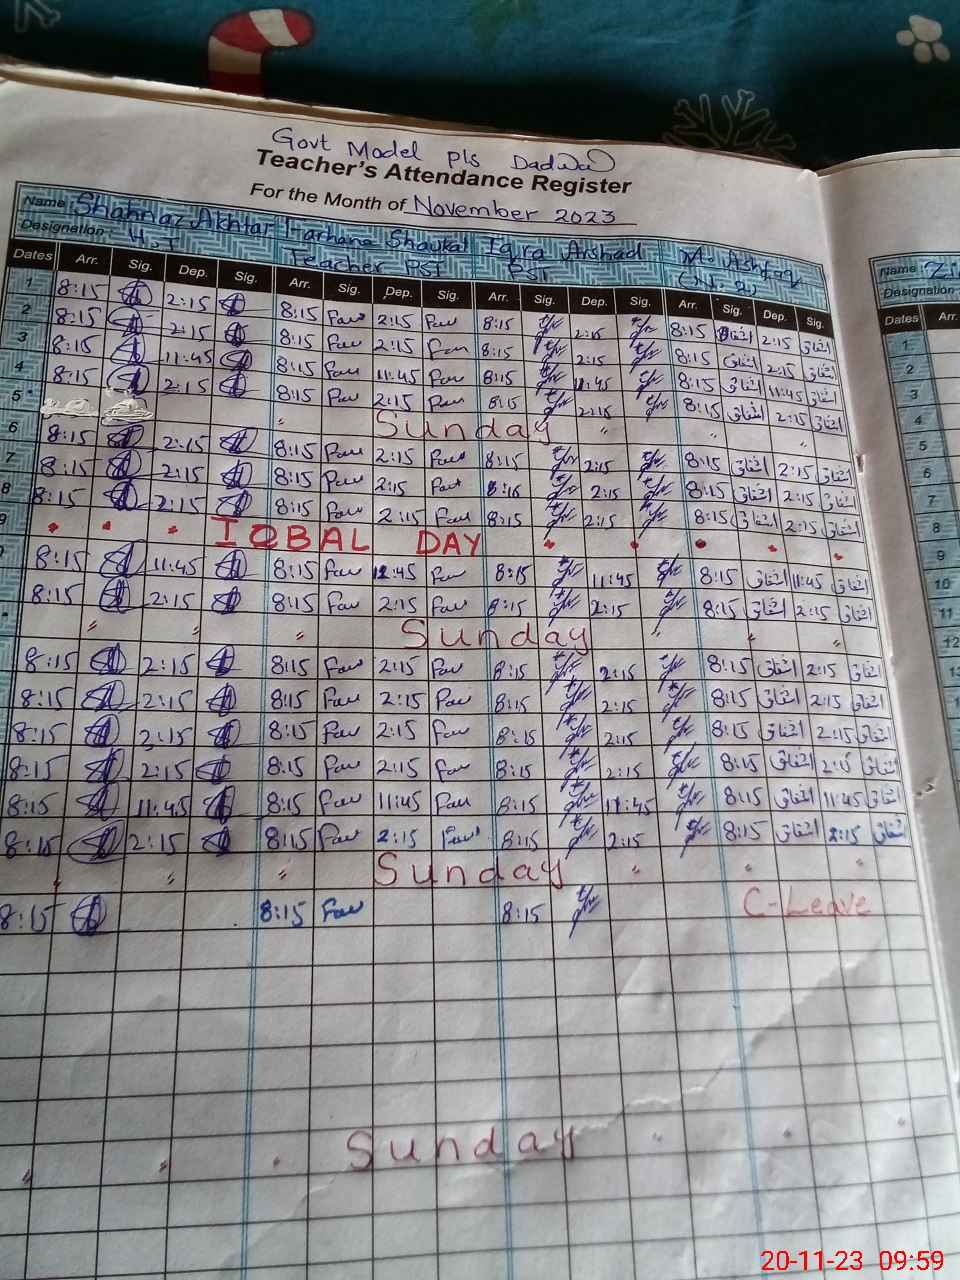 Govt Model Pls
Teacher's Attendance Register
For the Month of November 2023
Name Shahnaz Akhtar Farhana Shaukat Iqra Arshad M. Ashfaq
Designation H.T Teacher PST PST
Name
Designation
Dates Arr. Sig. Dep. Sig. Arr. Sig. Dep. Sig. Arr. Sig. Dep. Sig. Arr. Sig. Dep. Sig.
Dates Arr.
1 8:15 2:15 8:15 Far 2:15 Far 8:15 2:15 8:15 اشفاق 2:15 اشفاق 1
2 8:15 2:15 8:15 Far 2:15 Far 8:15 2:15 8:15 اشفاق 2:15 اشفاق 2
3 8:15 11:45 8:15 Far 11:45 Far 8:15 11:45 8:15 اشفاق 11:45 اشفاق 3
4 8:15 2:15 8:15 Far 2:15 Far 8:15 2:15 8:15 اشفاق 2:15 اشفاق 4
5 " Sunday " " " 5
6 8:15 2:15 8:15 Far 2:15 Far 8:15 2:15 8:15 اشفاق 2:15 اشفاق 6
7 8:15 2:15 8:15 Far 2:15 Far 8:15 2:15 8:15 اشفاق 2:15 اشفاق 7
8 8:15 2:15 8:15 Far 2:15 Far 8:15 2:15 8:15 اشفاق 2:15 اشفاق 8
9 IQBAL DAY 9
8:15 11:45 8:15 Far 12:45 Far 8:15 11:45 8:15 اشفاق 11:45 اشفاق 10
8:15 2:15 8:15 Far 2:15 Far 8:15 2:15 8:15 اشفاق 2:15 اشفاق 11
" " " Sunday " " " 12
8:15 2:15 8:15 Far 2:15 Far 8:15 2:15 8:15 اشفاق 2:15 اشفاق 13
8:15 2:15 8:15 Far 2:15 Far 8:15 2:15 8:15 اشفاق 2:15 اشفاق
8:15 2:15 8:15 Far 2:15 Far 8:15 2:15 8:15 اشفاق 2:15 اشفاق
8:15 2:15 8:15 Far 2:15 Far 8:15 2:15 8:15 اشفاق 2:15 اشفاق
8:15 11:45 8:15 Far 11:45 Far 8:15 11:45 8:15 اشفاق 11:45 اشفاق
8:15 2:15 8:15 Far 2:15 Far 8:15 2:15 8:15 اشفاق 2:15 اشفاق
" " " Sunday " " "
8:15 8:15 Far 8:15 C-Leave
" " " Sunday " " "
20-11-23 09:59